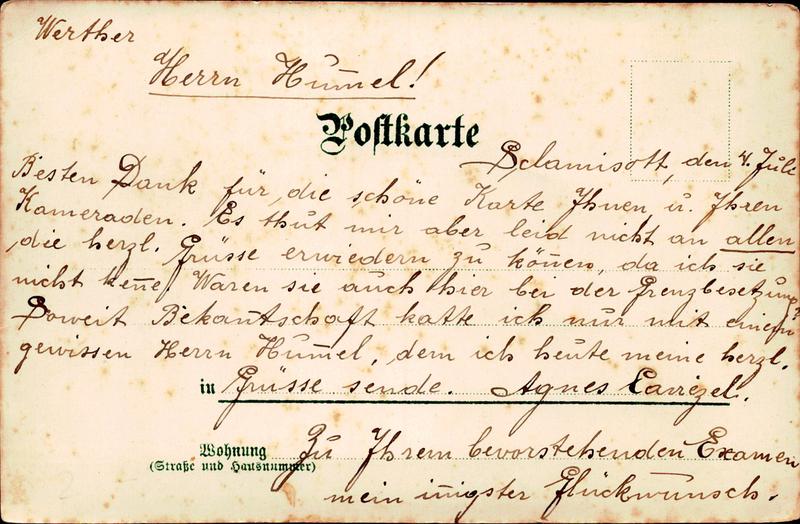 Werther
Herrn Hum̅el!
Postkarte
den 4. Juli
Besten Dank für die schöne Karte Ihnen u. Ihren
Kameraden. Es thut mir aber leid nicht an allen
die herzl. Grüsse erwiedern zu kön̅en, da ich sie
nicht ken̅e. Waren sie auch hier bei der Grenzbesetzung?
Soweit Bekan̅tschaft hatte ich nur mit einem
gewissen Herrn Hum̅el, dem ich heute meine herzl.
in Grüsse sende. Agnes
Wohnung Zu Ihrem bevorstehenden Examen
(Straße und Hausnummer)
mein in̅igster Glückwunsch.